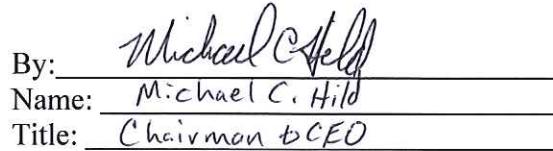 By: Michael C Hild
Name: Michael C. Hild
Title: Chairman & CEO